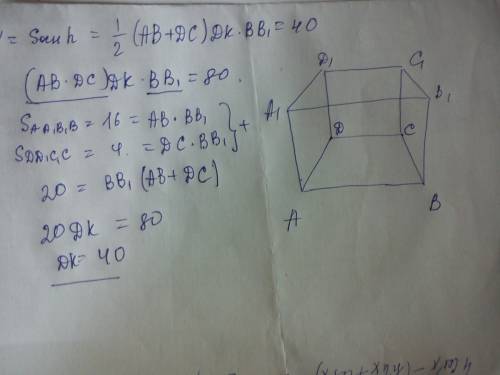 = Sосн h = 1/2 (AB+DC) DK · BB₁ = 40
(AB · DC) DK · BB₁ = 80.
S A A₁B₁B = 16 = AB · BB₁
S DD₁C₁C = 4 . = DC · BB₁ } +
20 = BB₁ (AB + DC)
20 DK = 80
DK = 40
D₁ C₁
A₁ B₁
D C
A B